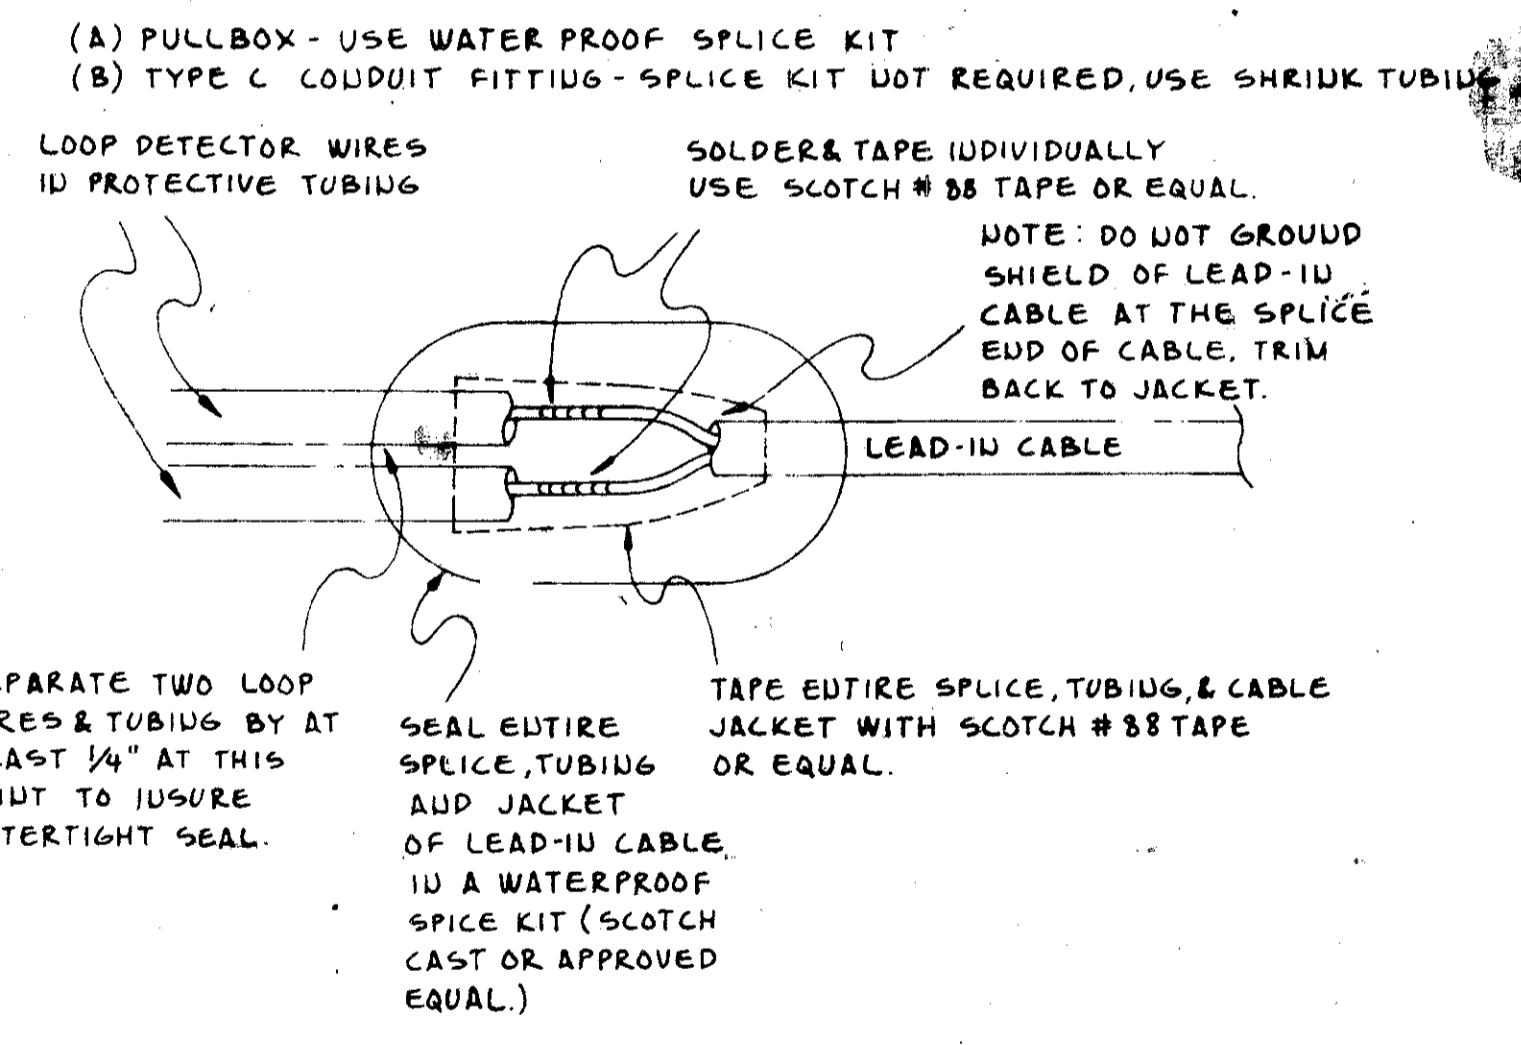 (A) PULLBOX - USE WATER PROOF SPLICE KIT
(B) TYPE C CONDUIT FITTING - SPLICE KIT NOT REQUIRED, USE SHRINK TUBING
LOOP DETECTOR WIRES
IN PROTECTIVE TUBING
SOLDER & TAPE INDIVIDUALLY
USE SCOTCH # 88 TAPE OR EQUAL.
NOTE: DO NOT GROUND
SHIELD OF LEAD-IN
CABLE AT THE SPLICE
END OF CABLE. TRIM
BACK TO JACKET.
LEAD-IN CABLE
PARATE TWO LOOP
RES & TUBING BY AT
AST 1/4" AT THIS
INT TO INSURE
TERTIGHT SEAL.
SEAL ENTIRE
SPLICE, TUBING
AND JACKET
OF LEAD-IN CABLE
IN A WATERPROOF
SPICE KIT (SCOTCH
CAST OR APPROVED
EQUAL.)
TAPE ENTIRE SPLICE, TUBING, & CABLE
JACKET WITH SCOTCH # 88 TAPE
OR EQUAL.